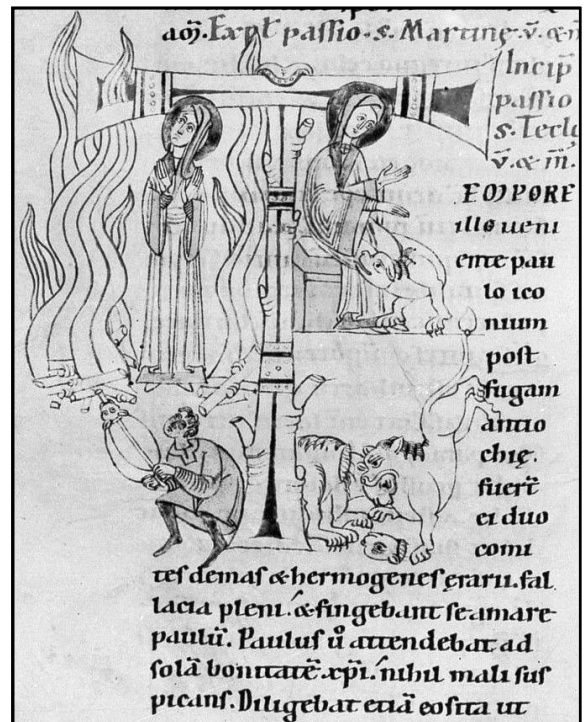 aoɱ. Expł passio. s. Martinę. v̄. & ɱ
Incip̄
passio
s. Teclę
v̄. & m̄.
EMPORE
illo ueni
ente pau
lo ico
nium
post
fugam
antio
chię
fuer̄t
ei duo
comi
tes demas & hermogenes ęrarii. fal
lacia pleni. & fingebant se amare
paulū. Paulus ů attendebat ad
solā bonitatē. xp̄i. nihil mali sus
picans. Diligebat etiā eos ita ut